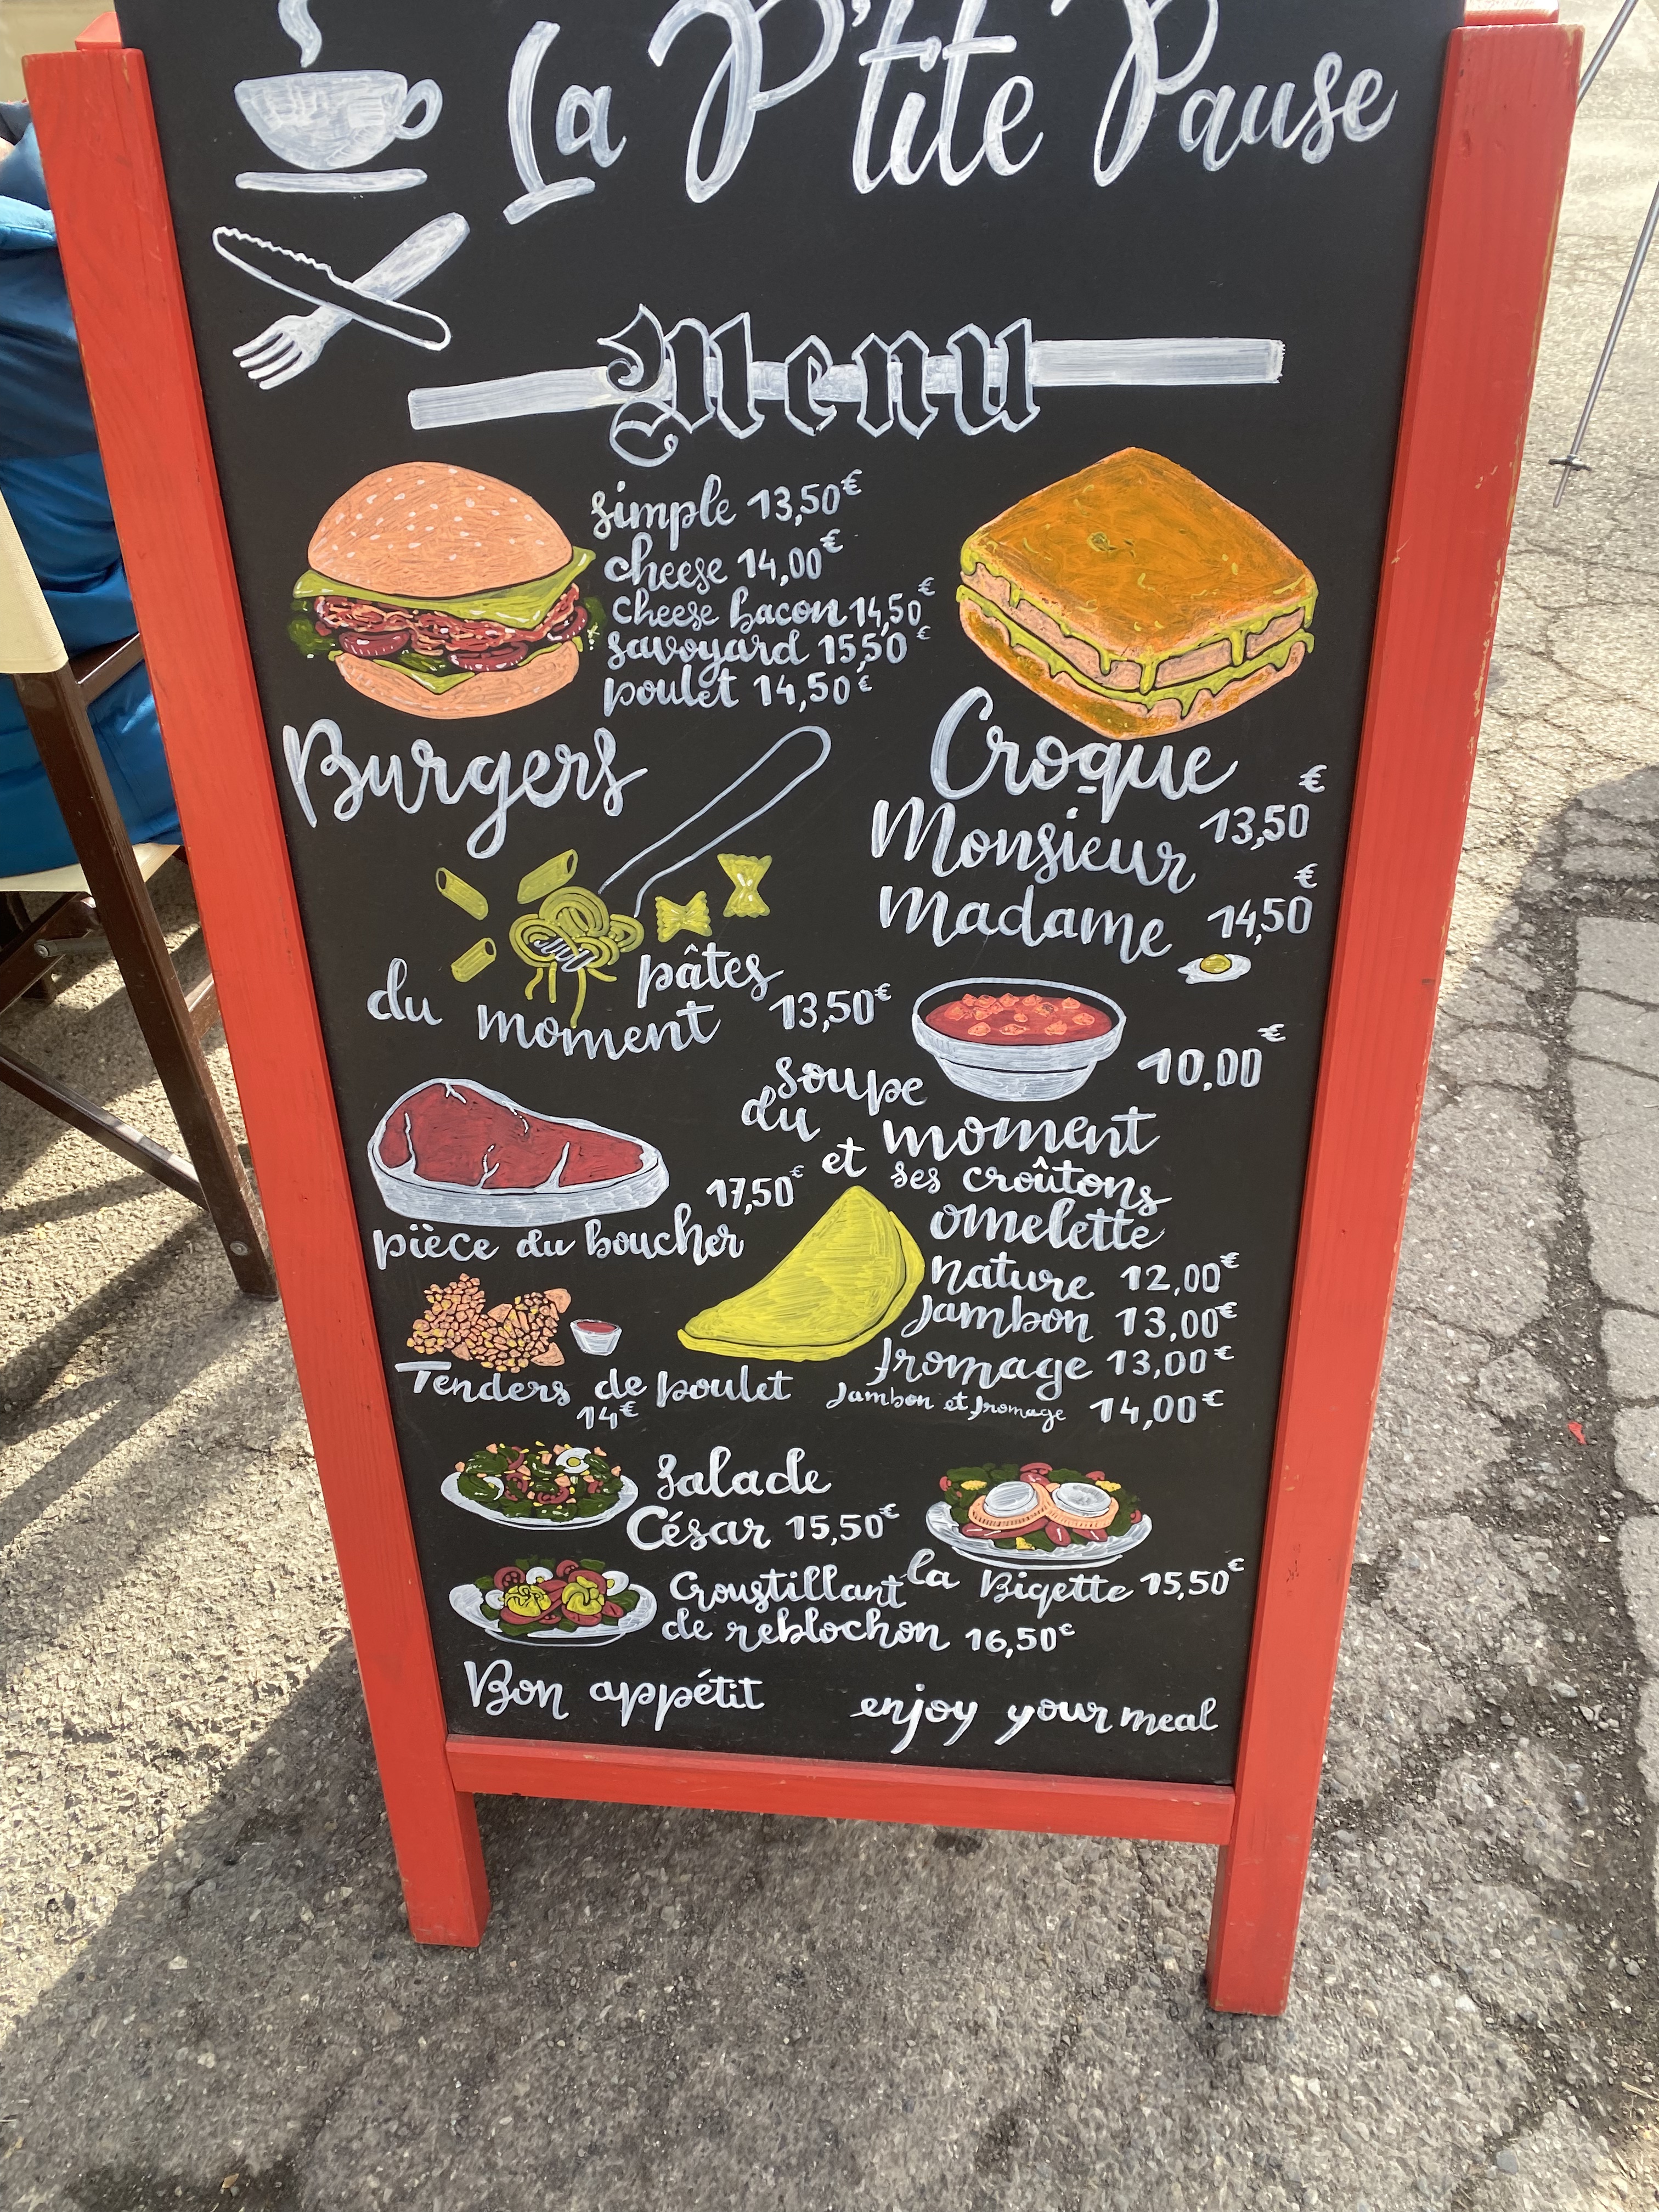 La P'tite Pause
Menu
simple 13,50€
cheese 14,00€
cheese bacon 14,50€
savoyard 15,50€
poulet 14,50€
Burgers
Croque
Monsieur 13,50€
Madame 14,50€
pâtes
du moment 13,50€
soupe 10,00€
du moment
et ses croûtons
pièce du boucher 17,50€
omelette
nature 12,00€
Jambon 13,00€
fromage 13,00€
Jambon et fromage 14,00€
Tenders de poulet
14€
Salade
César 15,50€
la Biqette 15,50€
Croustillant
de reblochon 16,50€
Bon appétit enjoy your meal